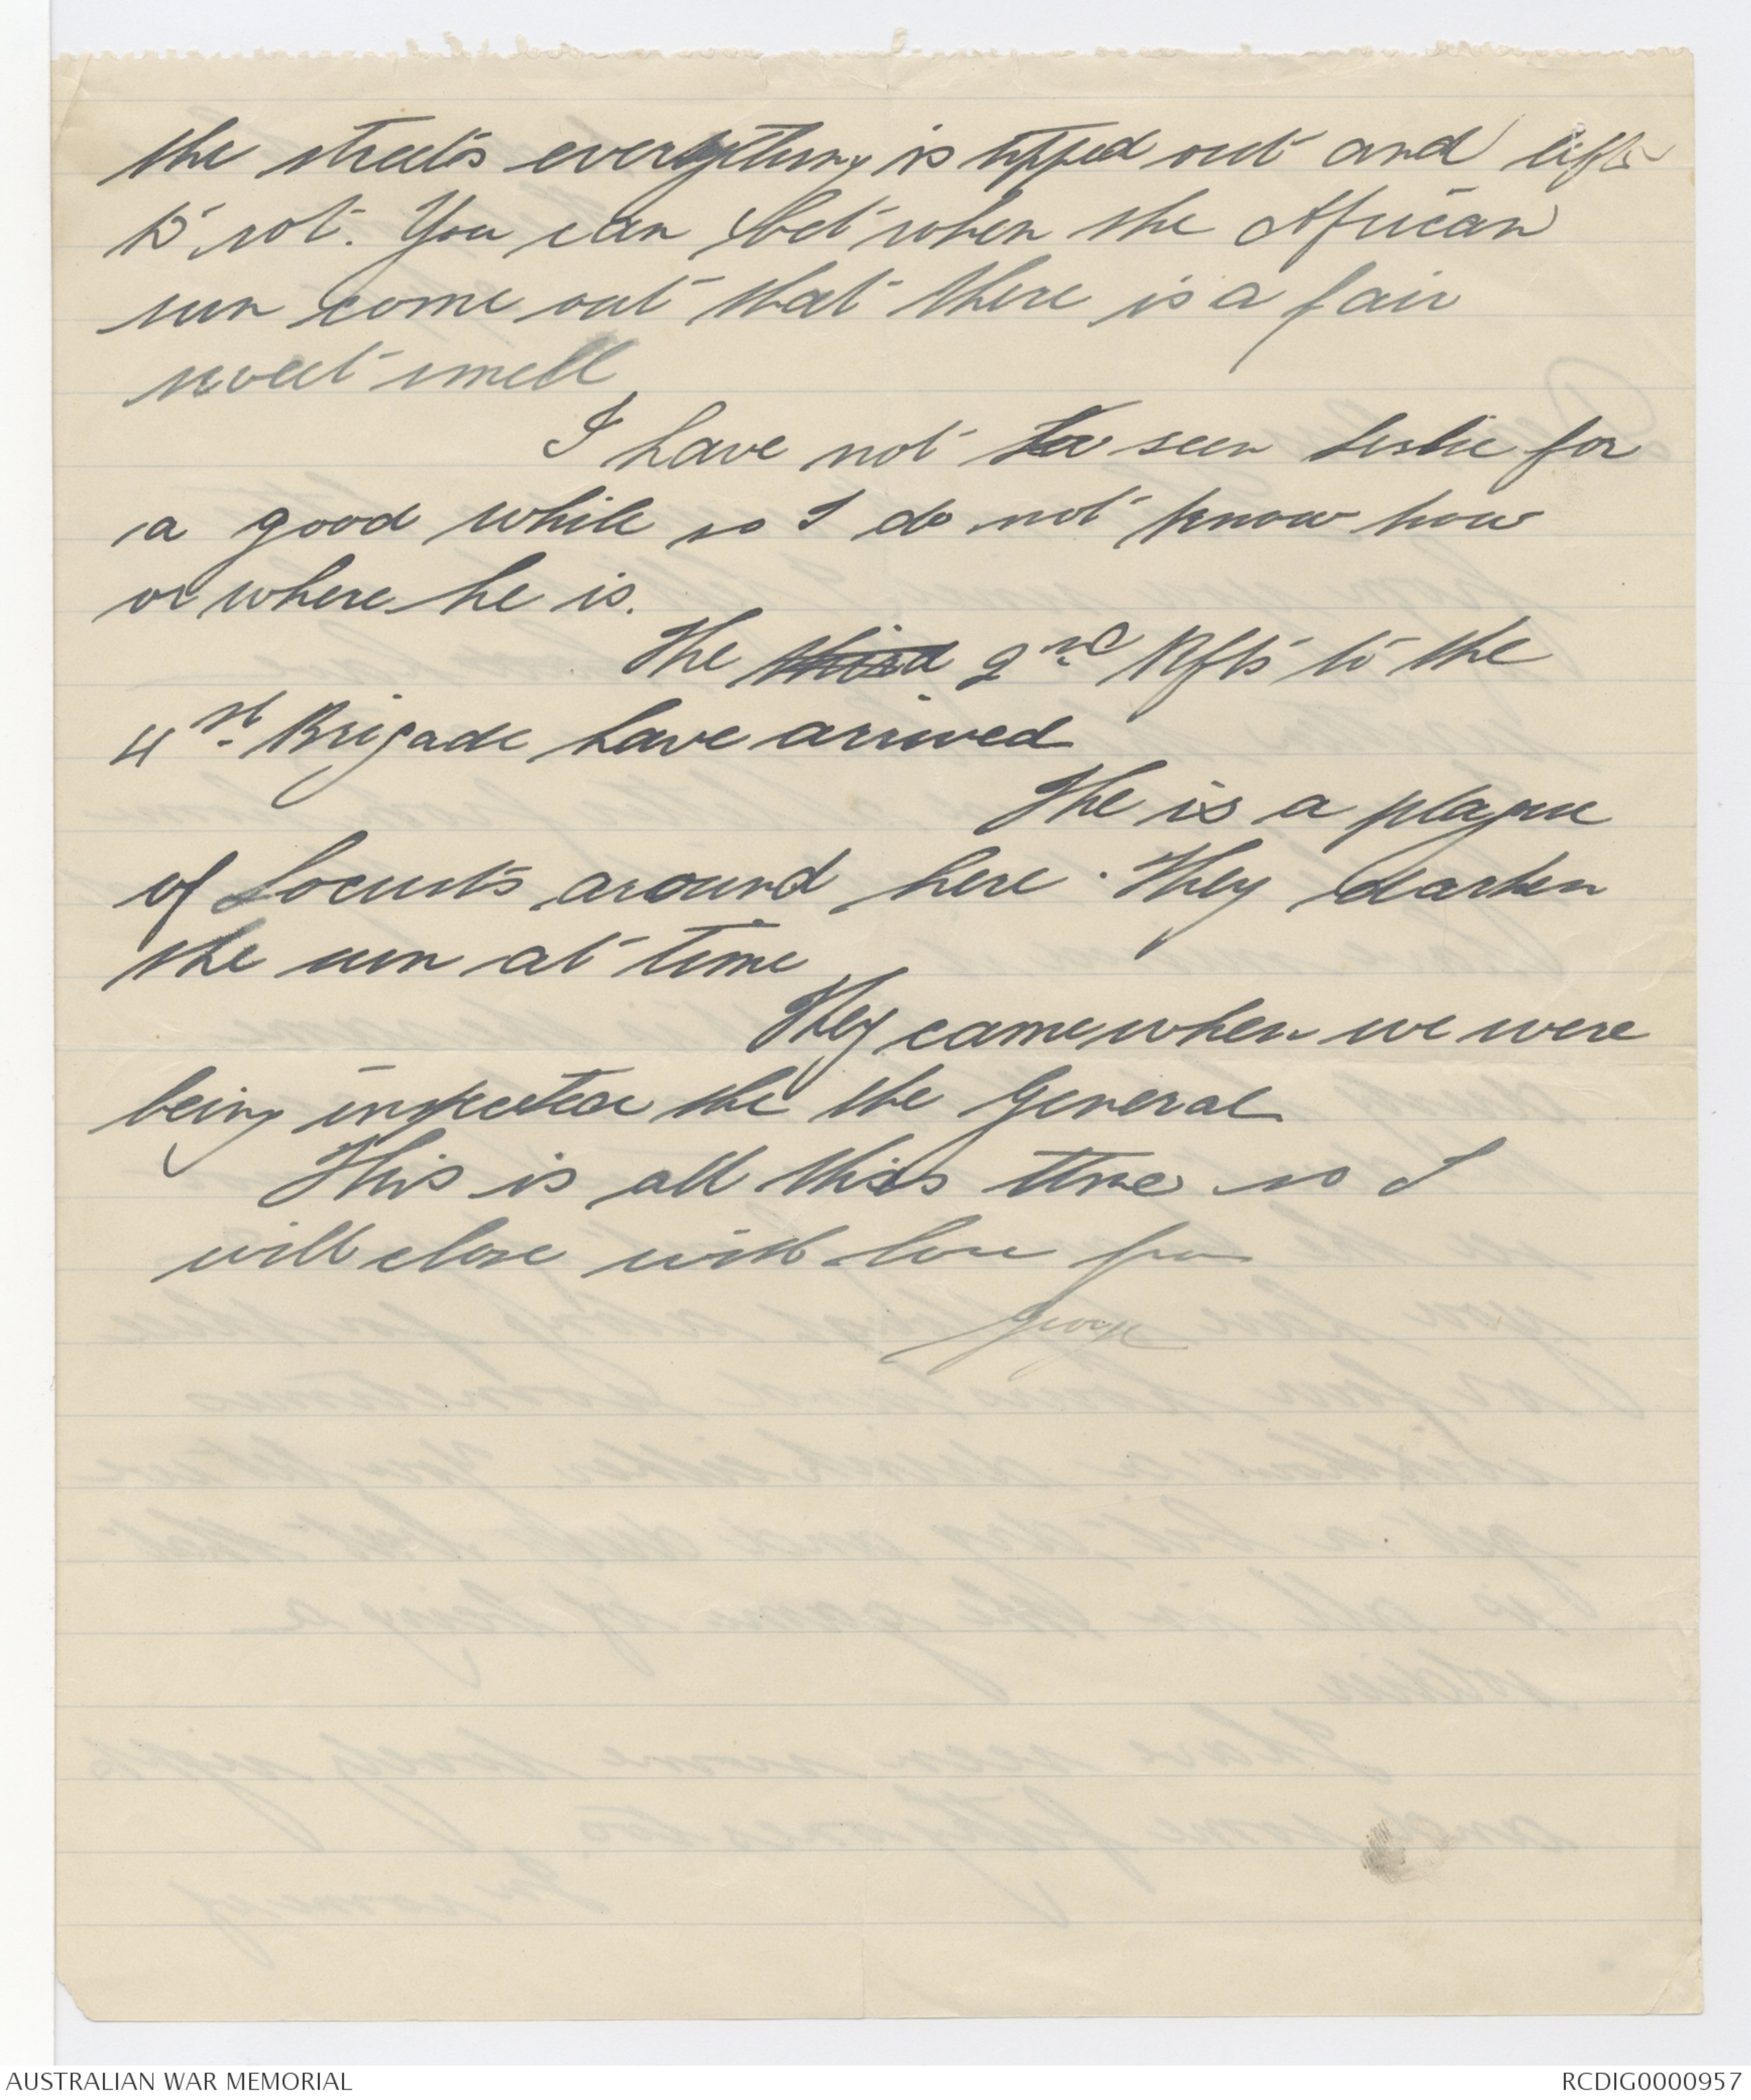 the streets everything is tipped out and left
to rot. You can bet when the African
sun come out that there is a fair
sweet smell
I have not seen Leslie for
a good while so I do not know how
or where he is.
The third 2nd Rfts to the
4st Brigade have arrived
The is a plague
of Locusts around here. They darken
the sun at time
They came when we were
being inspected the the General
This is all this time so I
will close with love from
George
AUSTRALIAN WAR MEMORIAL
RCDIG0000957